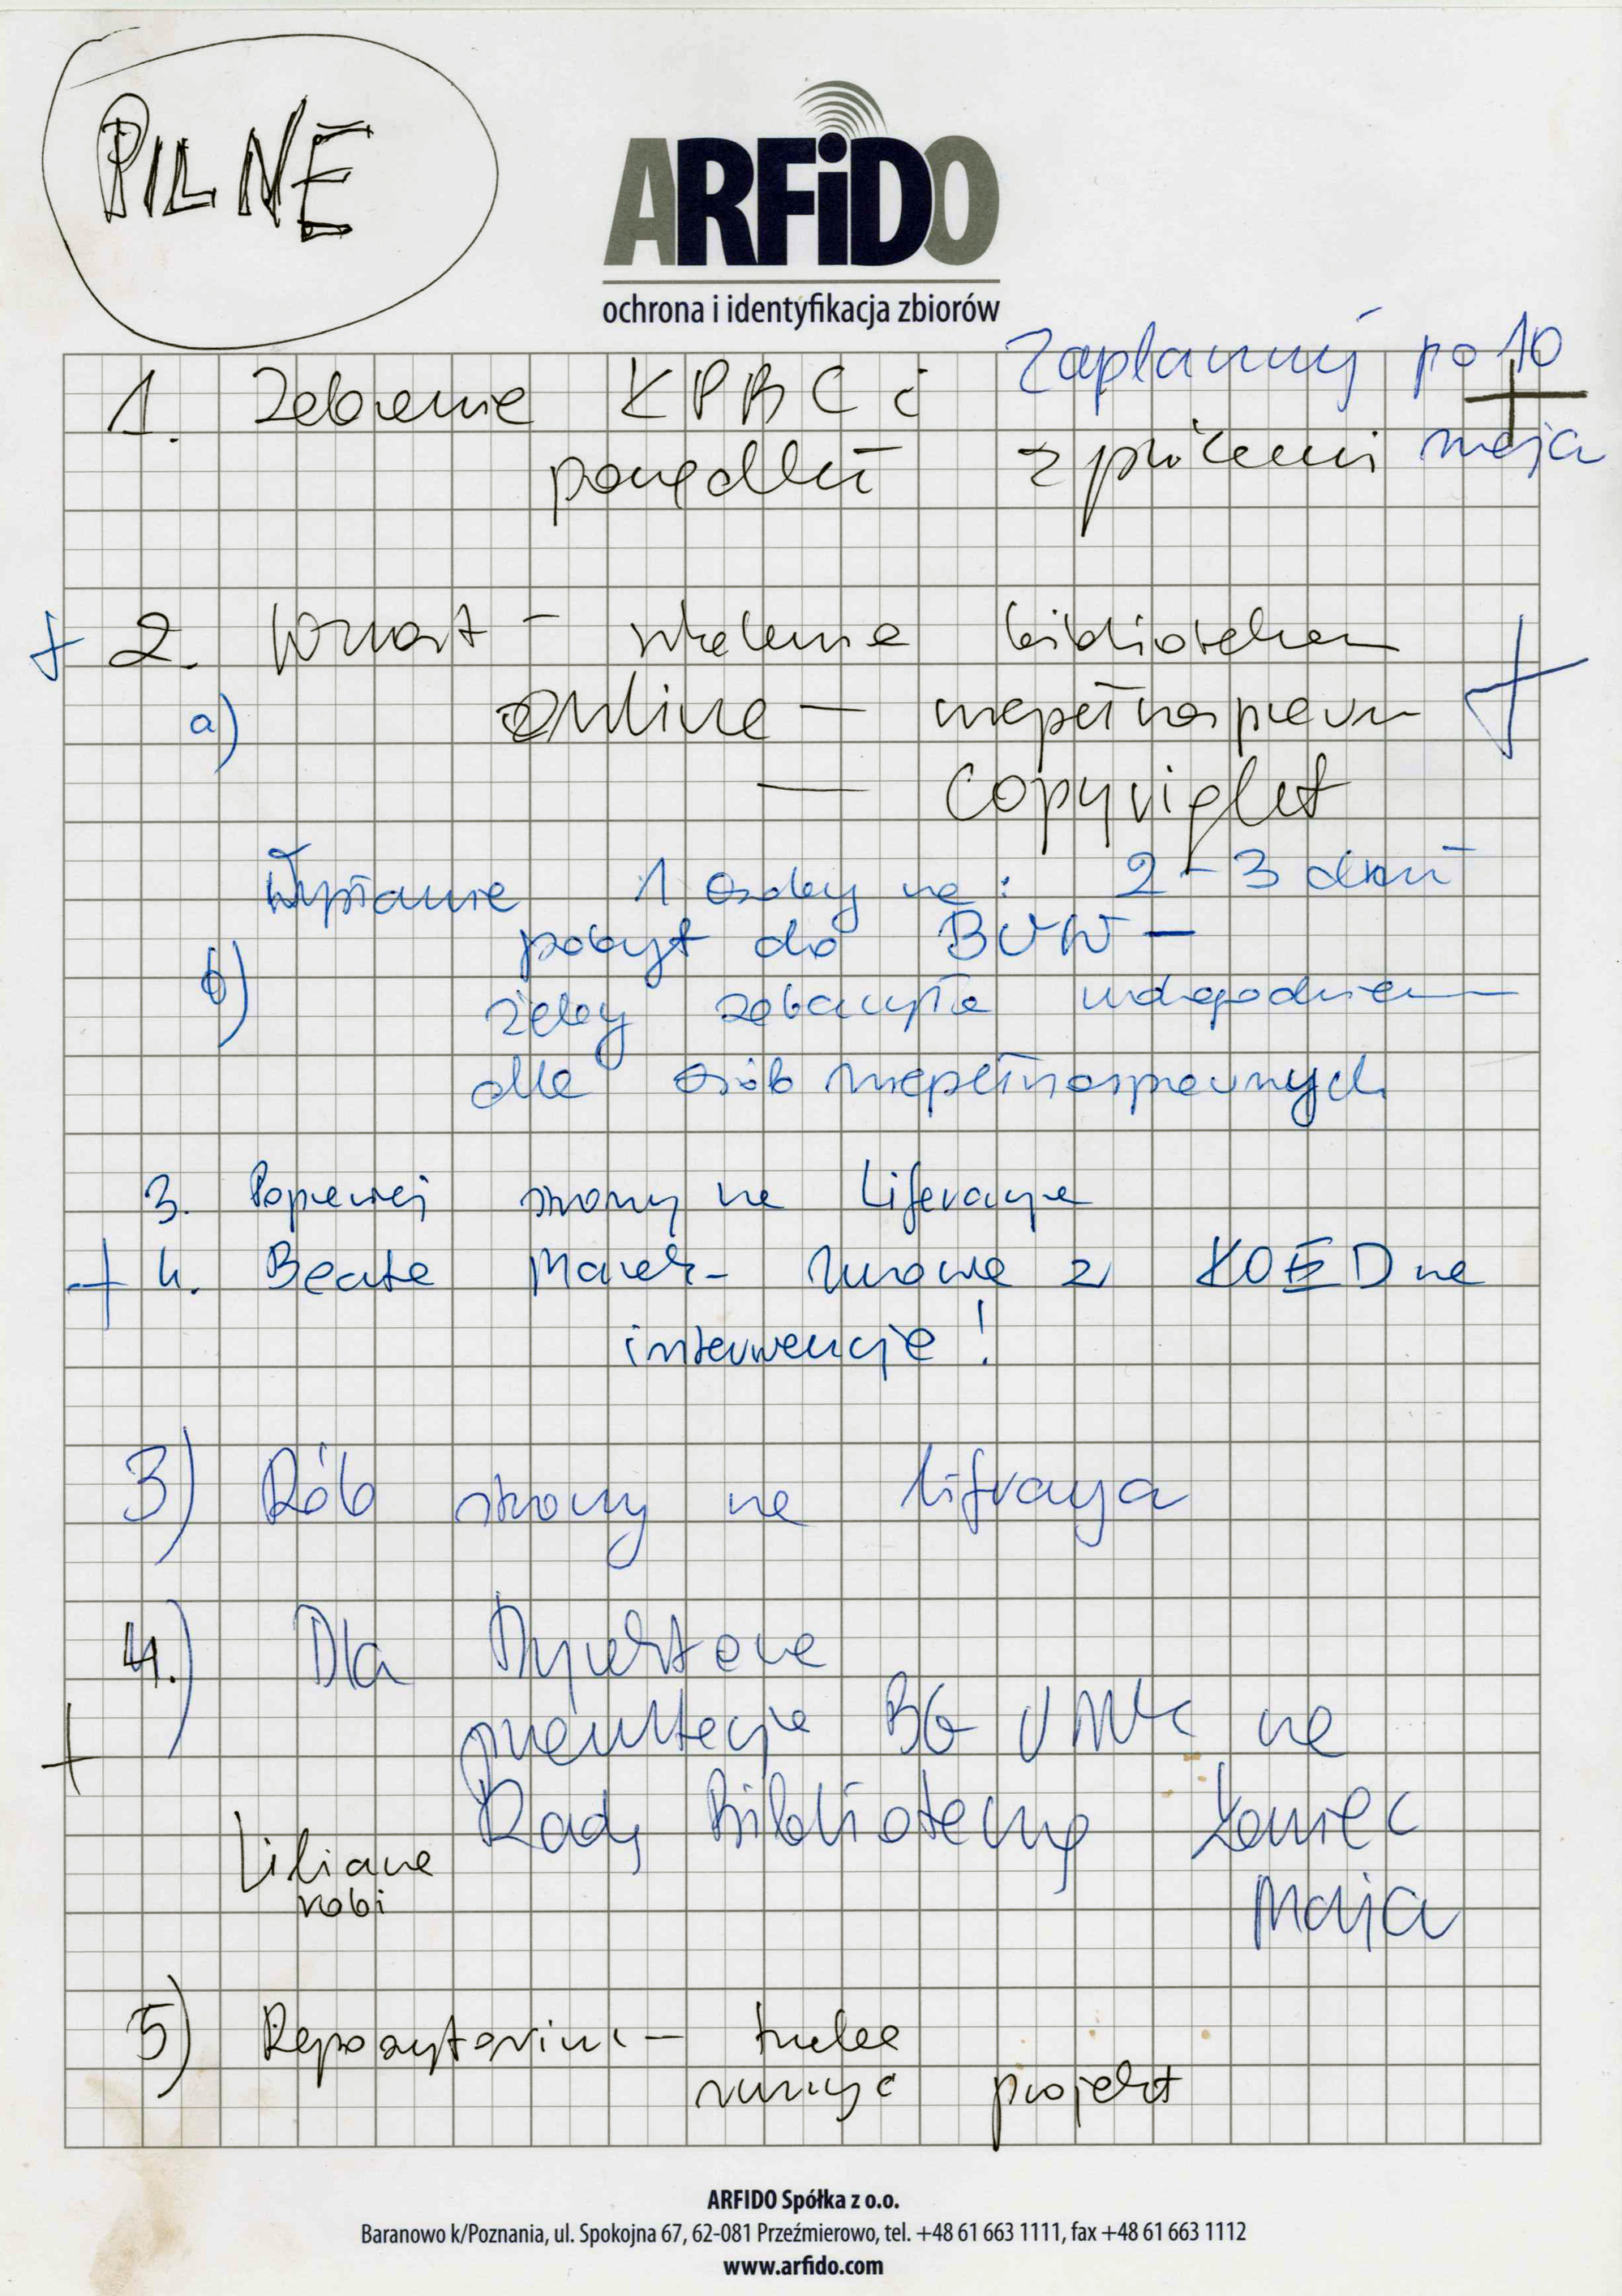 PILNE
ARFiDO
ochrona i identyfikacja zbiorów
Zaplanuj po 10
maja
1. Zebranie KPBC i
porządki z
2. Wniosek – szkolenie bibliotekarzy
a) online – niepełnosprawn
— Copyright
Wysłanie 1 osoby na: 2-3 dni
pobyt do BUW –
b) żeby zobaczyła udogodnien
dla osób niepełnosprawnych
3. Poprawiej strony na Liferayu
4. Beata Marek – Umowa z KOED na
interwencje!
3) Rób strony na lifraya
4.) Dla Dyrektora
prezentacja BG UMK na
Radę Biblioteczną koniec
Maja
Liliana
robi
5) Repozytorium – trzeba
ruszyć projekt
ARFIDO Spółka z o.o.
Baranowo k/Poznania, ul. Spokojna 67, 62-081 Przeźmierowo, tel. +48 61 663 1111, fax +48 61 663 1112
www.arfido.com